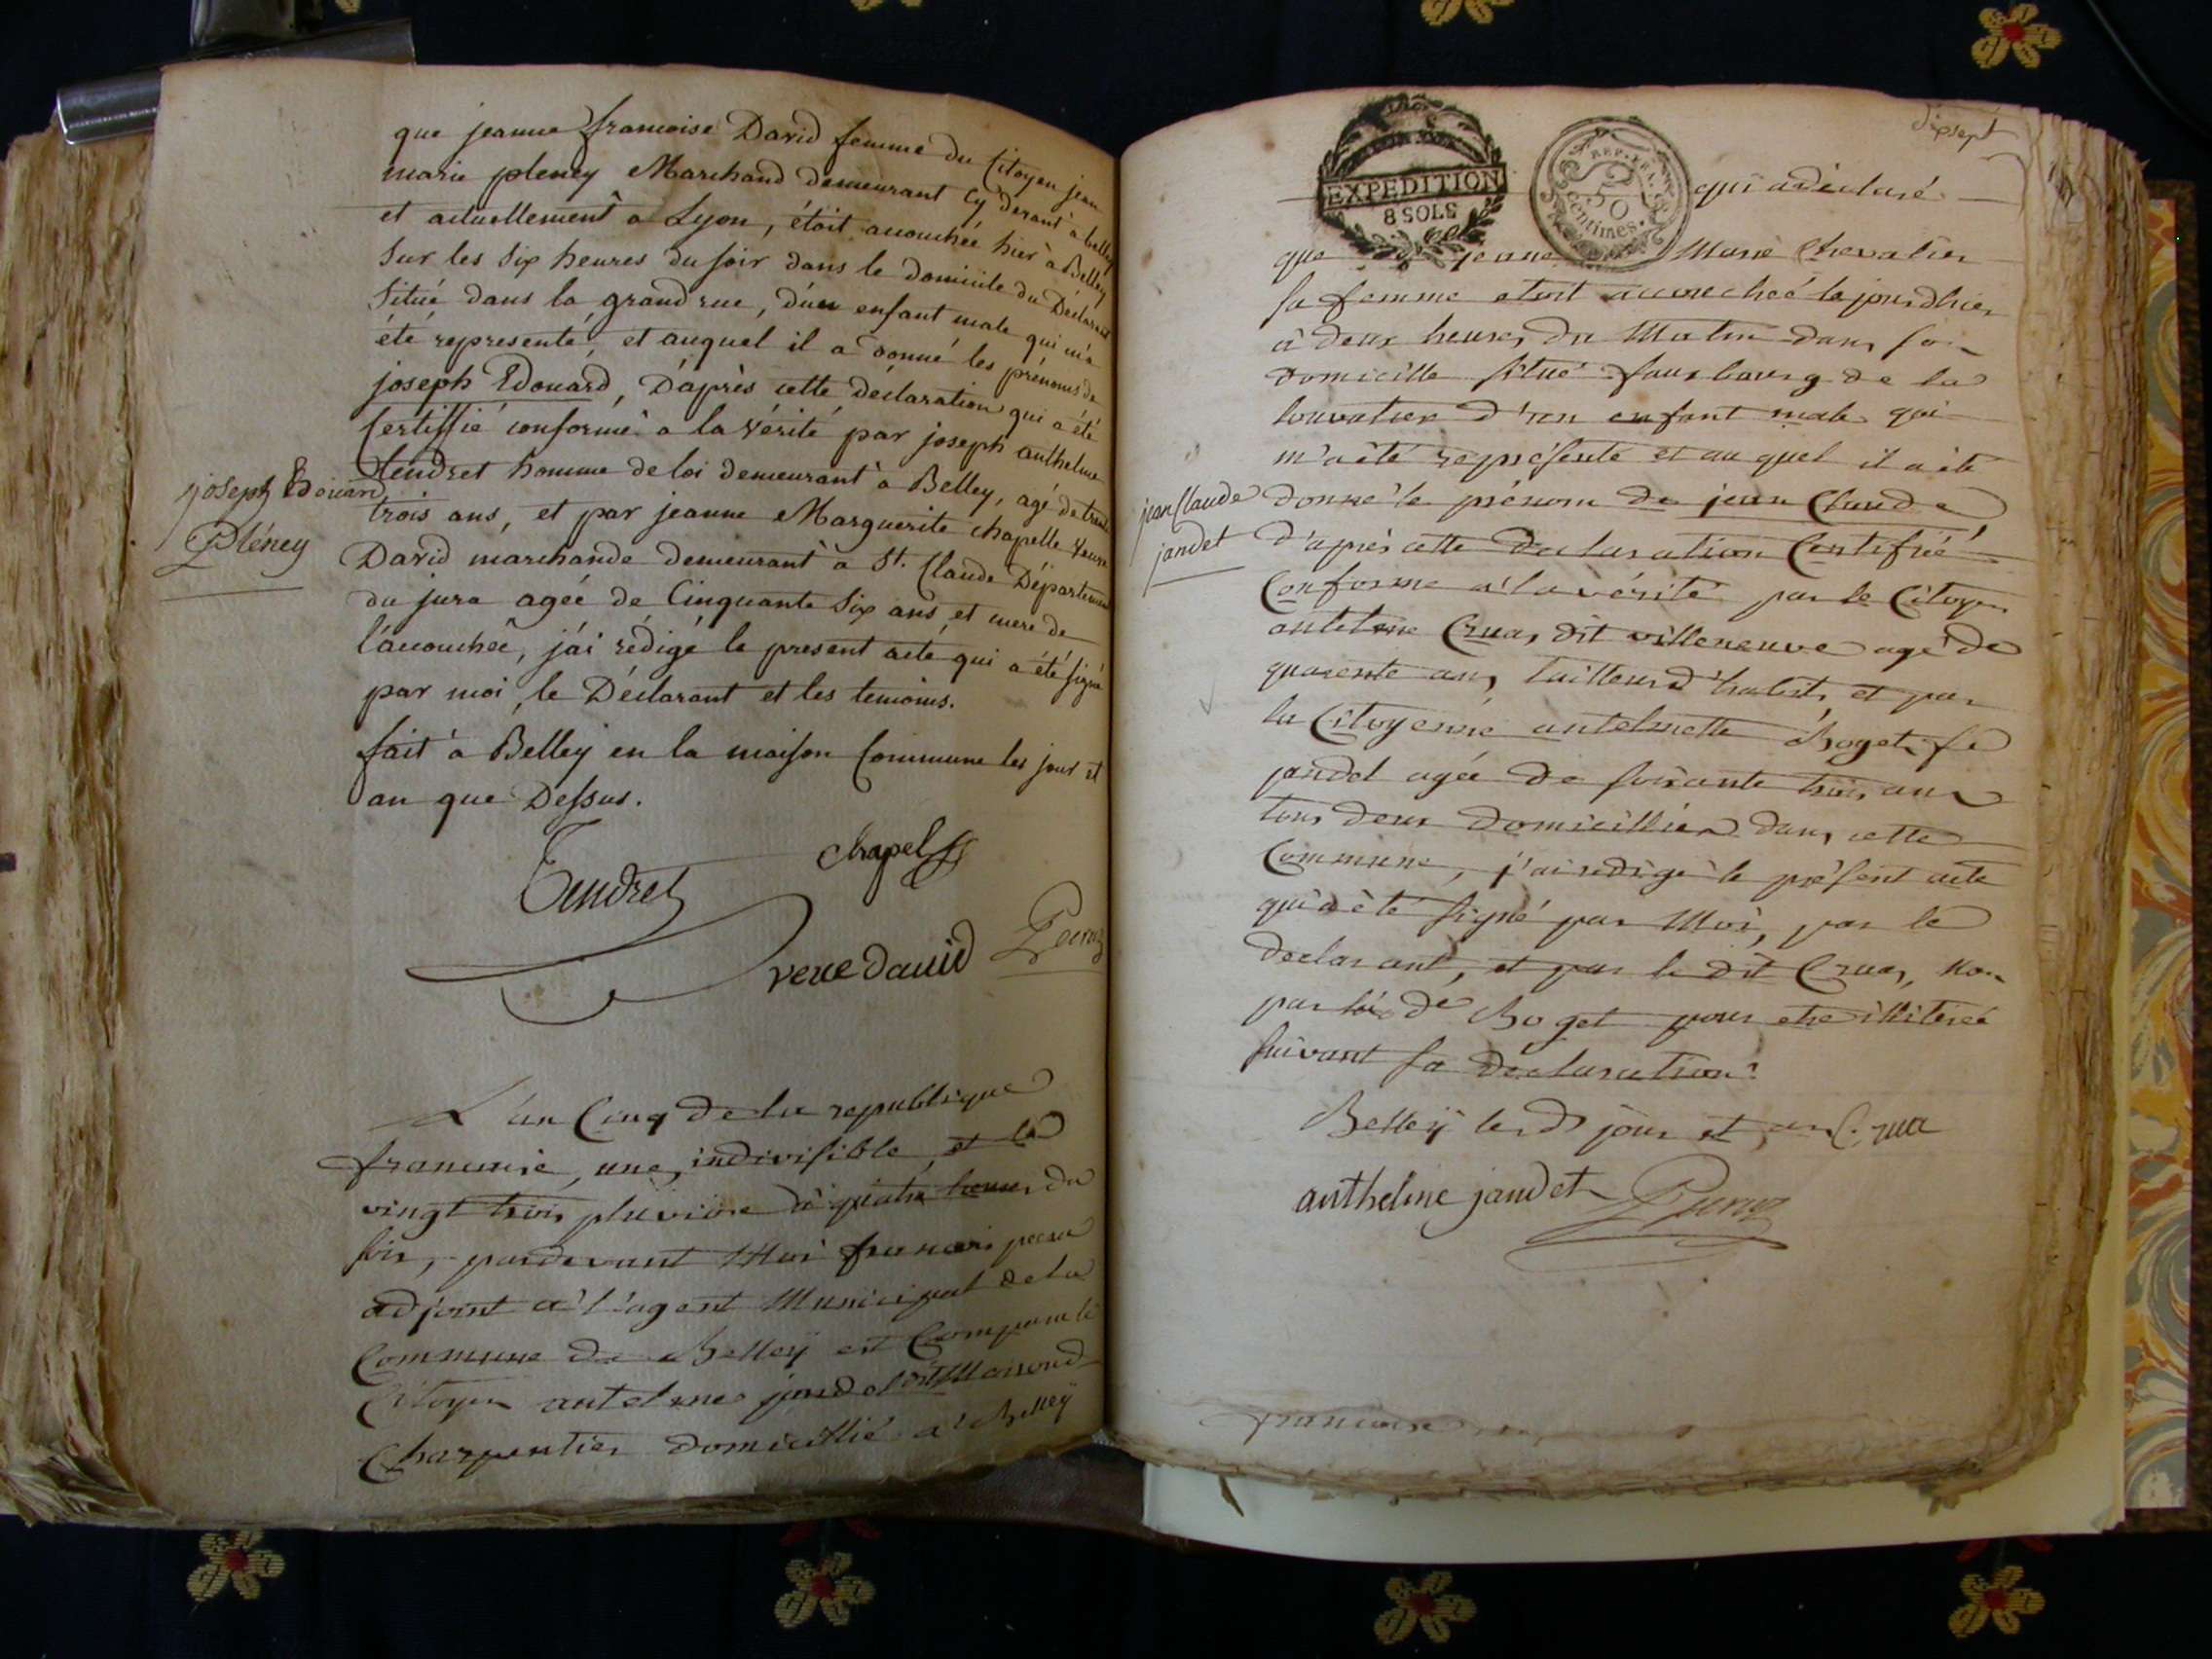 que jeanne francoise David femme du Citoyen jean
marie pleney Marchand demeurant Cy devant à belley
et actuellement a Lyon, étoit accouchée hier à Belley
sur les six heures du soir dans le domicile du Déclarant
situé dans la grand rue, d'un enfant male qui m'a
été representé, et auquel il a donné les prénoms de
joseph Edouard, D'après cette déclaration qui a été
Certiffié conforme a la vérité par joseph anthelme
tendret homme de loi demeurant à Belley, agé de trente
trois ans, et par jeanne Marguerite chapelle veuve
David marchande demeurant à St. Claude Département
du jura agée de Cinquante six ans et mere de
l'accouchée, j'ai rédigé le present acte qui a été signé
par moi, le Déclarant et les temoins.
fait à Belley en la maison Commune les jour et
an que Dessus.
joseph Edouard
Pléney
Tendret
chapel
veue david
L'an Cinq de la republique
francaise, une, indivisible, et le
vingt trois pluviose à quatre heures du
soir, pardevant Moi francois
adjoint a l'agent Municipal de la
Commune de Belley est Comparu le
Citoyen antelme jandet dit
Charpentier domicillié a Belley
dixsept
EXPEDITION
8 SOLS
REP. FRA.
50
centimes.
qui a déclaré
que jeanne Marie Chevalier
sa femme etoit accoucheé le jourd'hier
à deux heures du Matin dans son
domicille situé fauxbourg de la
d'un enfant male qui
m'a été représenté et au quel il a été
donné le prénom de jean Claude
jean Claude
jandet
d'après cette declaration Certifiée
Conforme a la vérité par le Citoyen
antelme Cruas dit villeneuve agé de
quarente ans, tailleur d'habits, et par
la Citoyenne antelmette Boget fe
jandet agée de soixante trois ans
tous deux domicilliés dans cette
Commune, j'ai rédigé le présent acte
qui a été signé par Moi, par le
declarant, et par le dit Cruas, non
par la de Boget pour etre illiterée
suivant sa déclaration.
Belley lesd jour et an Crua
anthelme jandet
francoise